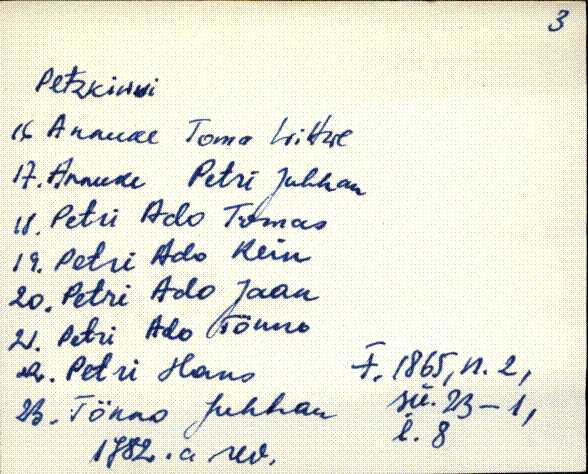 3
Petzkiwwi
16 Annuse Toma Writze
17. Annuse Petri Juhhan
18. Petri Ado Tomas
19. Petri Ado Rein
20. Petri Ado Jaan
21. Petri Ado Tönno
22. Petri Hans
23. Tönno Juhhan
F. 1865, n. 2,
sü. 23-1,
l. 8
1782. a rev.